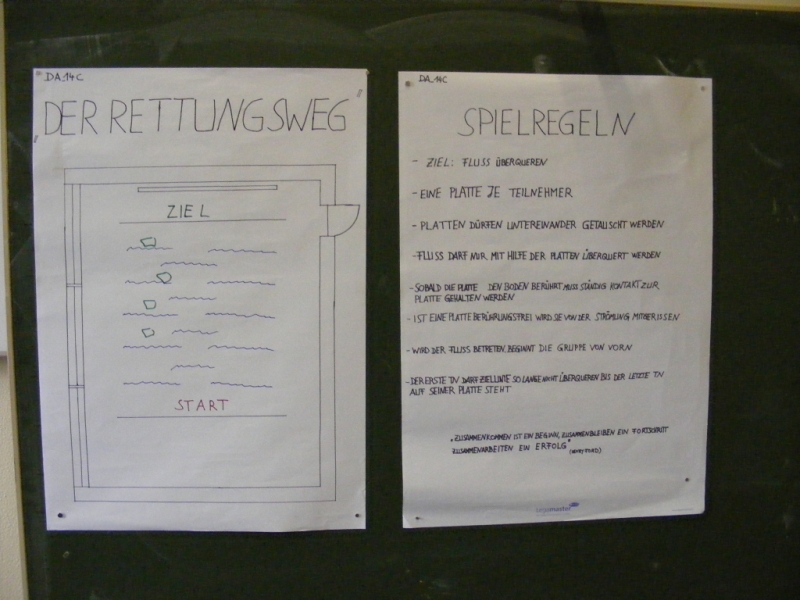 DA_14C
"DER RETTUNGSWEG"
ZIEL
START
DA_14C
SPIELREGELN
- ZIEL: FLUSS ÜBERQUEREN
- EINE PLATTE JE TEILNEHMER
- PLATTEN DÜRFEN UNTEREINANDER GETAUSCHT WERDEN
- FLUSS DARF NUR MIT HILFE DER PLATTEN ÜBERQUERT WERDEN
- SOBALD DIE PLATTE DEN BODEN BERÜHRT MUSS STÄNDIG KONTAKT ZUR
PLATTE GEHALTEN WERDEN
- IST EINE PLATTE BERÜHRUNGSFREI WIRD SIE VON DER STRÖMUNG MITGERISSEN
- WIRD DER FLUSS BETRETEN BEGINNT DIE GRUPPE VON VORN
- DER ERSTE TN DARF ZIELLINIE SO LANGE NICHT ÜBERQUEREN BIS DER LETZTE TN
AUF SEINER PLATTE STEHT
"ZUSAMMENKOMMEN IST EIN BEGINN, ZUSAMMENBLEIBEN EIN FORTSCHRITT
ZUSAMMENARBEITEN EIN ERFOLG" (HENRY FORD)